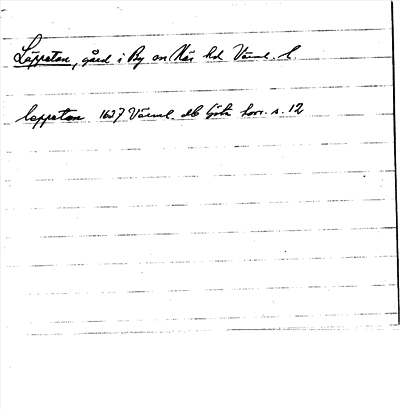 Läppetan, gård i By sn Näs hd Värml. l.
leppetan 1637 Värml. db Göta hovr. s. 12